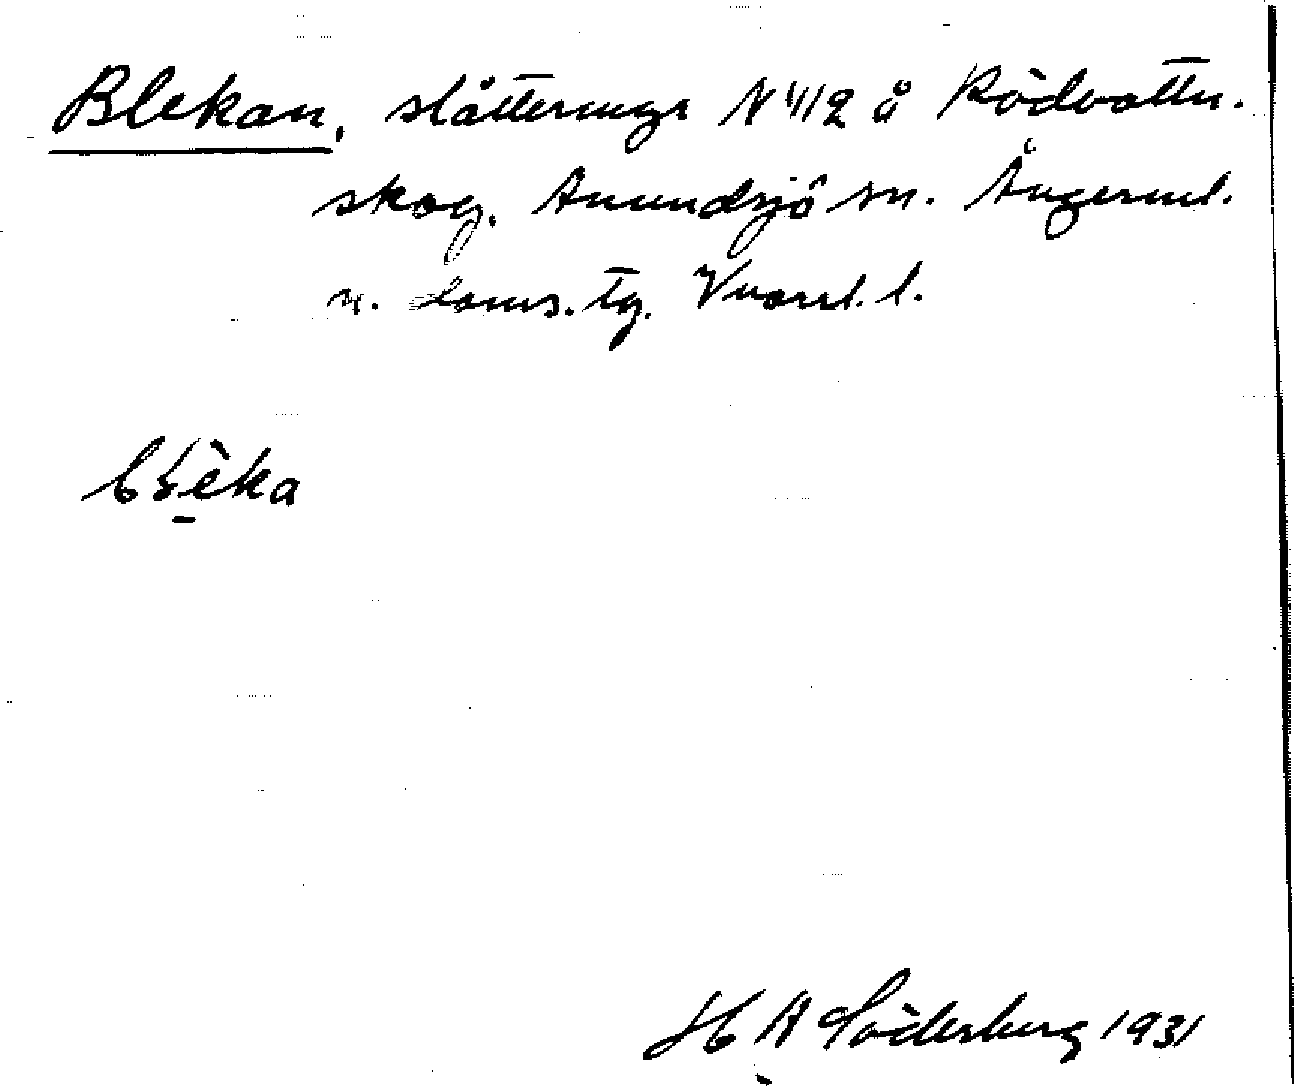 Blekan, slåttermyr N 1/2 å Rödvattn.
skog. Anundsjö sn. Ångerml.
n. doms. tg. Vnorrl. l.
H A Söderberg 1931